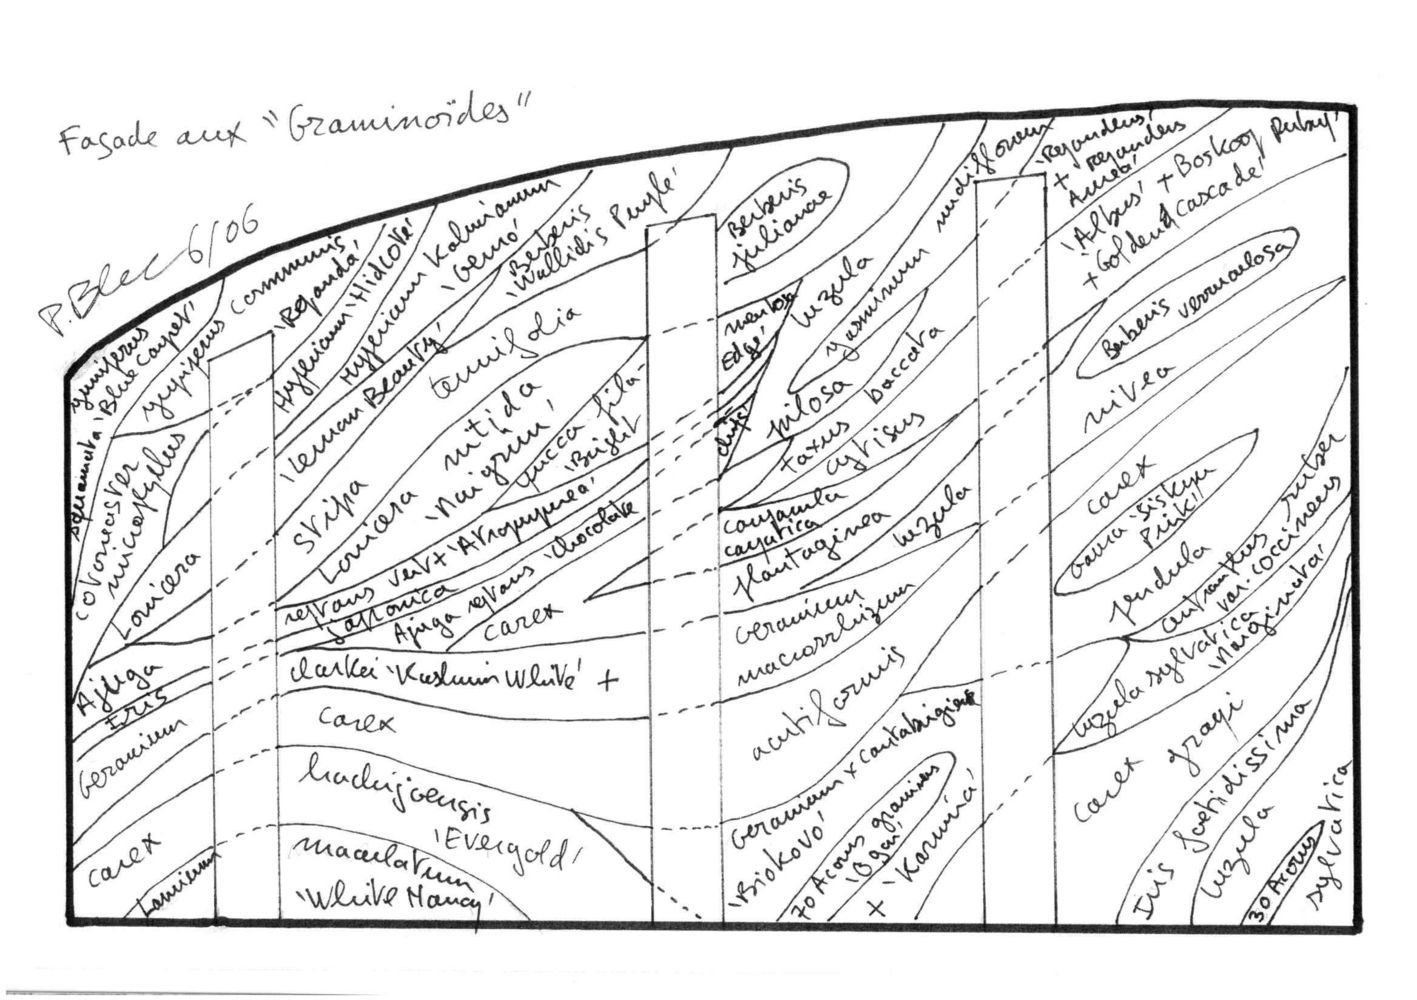 Façade aux "Graminoïdes"
P. Blanc 6/06
Juniperus
squamata 'Blue Carpet'
Juniperus communis
'Repanda'
Hypericum 'Hidcote'
Hypericum Kalmianum
'Gemo'
Berberis
'Wallichii Purple'
Berberis
julianae
nudiflorum
'Repandens'
+ Repandens
Aurea'
'Albus' + Boskoop Ruby'
+ 'Golden Cascade'
Cotoneaster
microphyllus
Lonicera
'Lemon Beauty'
Stipa
tenuifolia
Lonicera
nitida
'Maigrün'
Yucca fila-
'Bright
Edge'
Luzula
Jasminum
pilosa
Taxus
baccata
Cytisus
Berberis
verruculosa
nivea
Ajuga
reptans vert + 'Atropurpurea'
Iris
japonica
Ajuga reptans 'Chocolate
chips'
Carex
plantaginea
Luzula
Campanula
carpatica
Carex
pendula
Gaura 'Siskyu
Pink'
Centranthus ruber
var. coccineus
Luzula sylvatica
'Marginata'
Geranium
clarkei 'Kashmir White' +
Geranium
macrorrhizum
Carex
Carex
acutiformis
Carex
hachijoensis
'Evergold'
Lamium
maculatum
'White Nancy'
Geranium x cantabrigiense
'Biokovo'
+ 'Karmina'
70 Acorus gramineus
'Ogon'
Carex grayi
Iris foetidissima
Luzula
sylvatica
30 Acorus